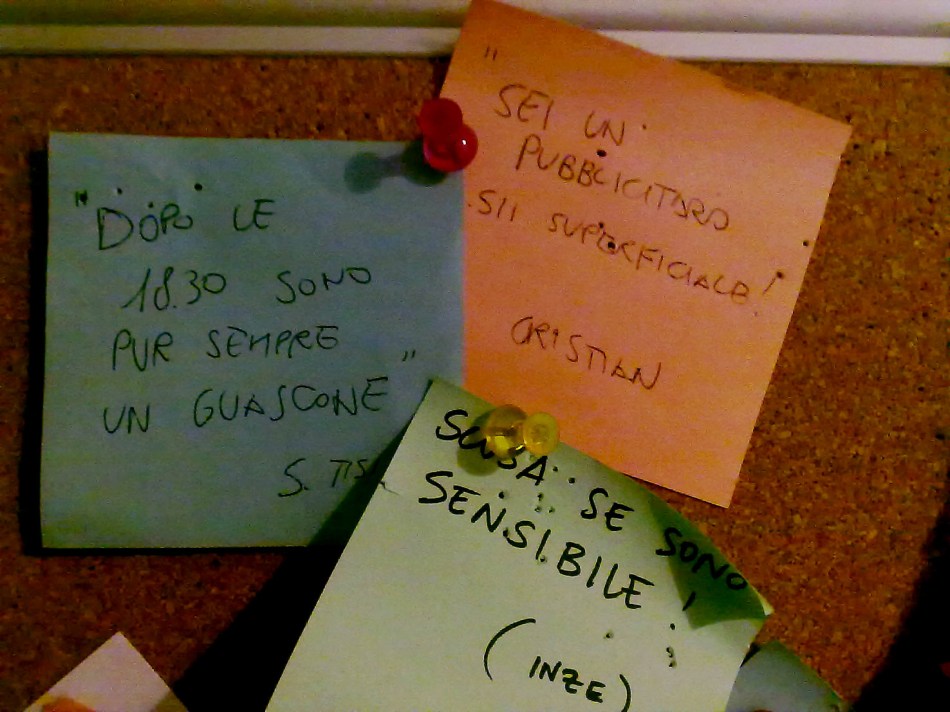 "DOPO LE
18.30 SONO
PUR SEMPRE
UN GUASCONE"
S. TIS
"
SEI UN
PUBBLICITARO
SII SUPERFICIALE!
CRISTIAN
SCUSA SE SONO
SENSIBILE!
(INZE)